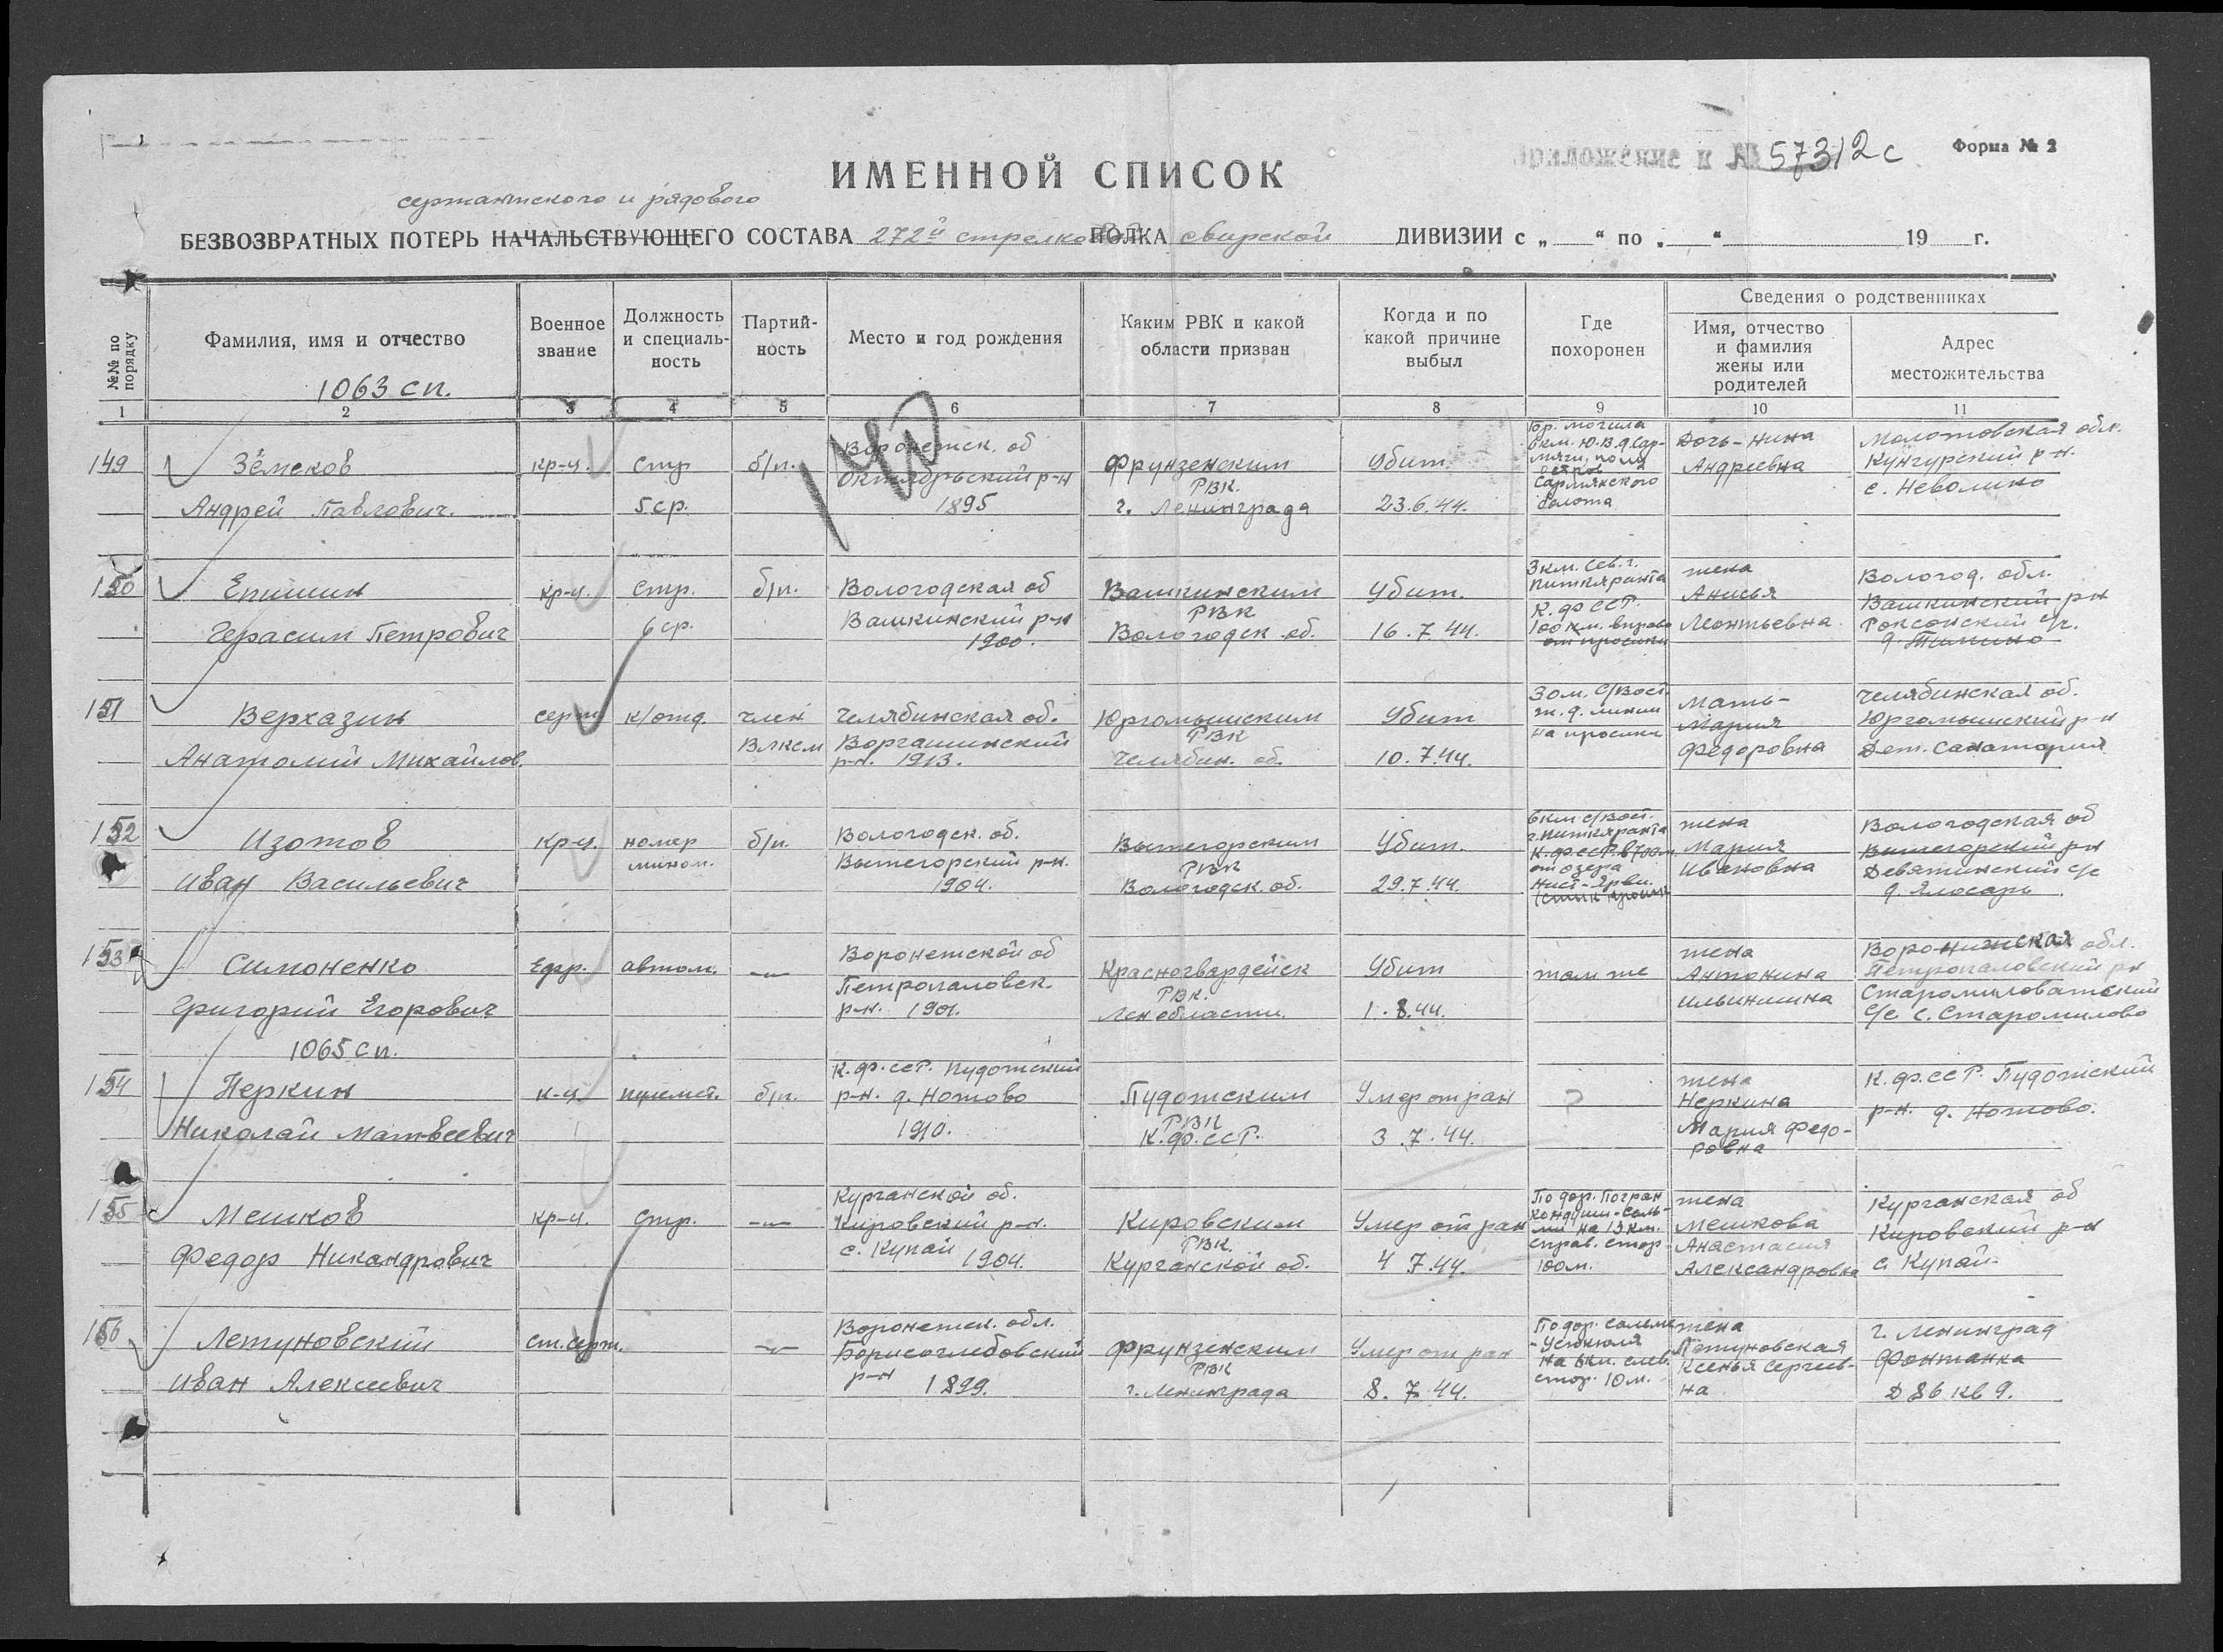 Приложение к № 57312с
Форма № 2
ИМЕННОЙ СПИСОК
сержантского и рядового
БЕЗВОЗВРАТНЫХ ПОТЕРЬ НАЧАЛЬСТВУЮЩЕГО СОСТАВА 272й стрелковой ПОЛКА свирской ДИВИЗИИ с „ “ по „ “ 19 г.
№№ по порядку
Фамилия, имя и отчество
1063 сп.
Военное звание
Должность и специальность
Партийность
Место и год рождения
Каким РВК и какой области призван
Когда и по какой причине выбыл
Где похоронен
Сведения о родственниках
Имя, отчество и фамилия жены или родителей
Адрес местожительства
1 2 3 4 5 6 7 8 9 10 11
149 Земсков Андрей Павлович.
кр-ц. стр 5 ср. б/п.
Воронежск. об Октябрьский р-н 1895
Фрунзенским РВК. г. Ленинграда
Убит 23.6.44.
болота
Дочь - Нина Андреевна
Молотовская обл. Кунгурский р-н. с. Неволино
150 Епишин Герасим Петрович
кр-ц. стр. 6 ср. б/п.
Вологодская об Вашкинский р-н 1900.
Вашкинским РВК Вологодск. об.
Убит. 16.7.44.
3 км. сев. г. Питкяранта К.ФССР. 100 км. вправо от просеки
жена Анисья Леонтьевна.
Вологод. обл. Вашкинский р-н Роксомский с/с. д. Тимино
151 Верхазин Анатолий Михайлов.
серж к/отд. член ВЛКСМ
Челябинская об. Воргашинский р-н. 1913.
Юргомышским РВК Челябин. об.
Убит 10.7.44.
ж.д. линии на просеке
мать - Мария Федоровна
Челябинская об. Юргомышский р-н Дет. Санатория
152 Изотов Иван Васильевич
кр-ц. номер мином. б/п.
Вологодск. об. Вытегорский р-н. 1904.
Вытегорским РВК Вологодск. об.
Убит. 29.7.44.
6 км с/вост. г. Питкяранта К.ФССР. в 700 м. от озера
жена Мария Ивановна
Вологодская об Вытегорский р-н Девятинский с/с
153 Симоненко Григорий Егорович
Ефр. автом. -"-
Воронежской об Петропаловск. р-н. 1901.
Красногвардейск РВК. Лен области.
Убит 1.8.44.
там же
жена Антонина Ильинишна
Воронижская обл. Петропаловский р-н Старомиловатский с/с с. Старомилово
1065 сп.
154 Неркин Николай Матвеевич
к-ц. пулемет. б/п.
К.Ф.ССР. Пудожский р-н. д. Нотово 1910.
Пудожским РВК К.Ф.ССР.
Умер от ран 3.7.44.
?
жена Неркина Мария Федоровна
К.Ф.ССР. Пудожский р-н. д. Нотово.
155 Мешков Федор Никандрович
кр-ц. Стр. -"-
Курганской об. Кировский р-н. с. Купай 1904.
Кировским РВК. Курганской об.
Умер от ран 4 7.44.
По дор. Погран Кондуши - Сальми на 13 км. справ. стор. 100 м.
жена Мешкова Анастасия Александровна
Курганская об Кировский р-н с. Купай.
156 Летуновский Иван Алексеевич
ст. серж. -"-
Воронежск. обл. Борисоглебовский р-н 1899.
Фрунзенским РВК г. Ленинграда
Умер от ран 8.7.44.
стор. 10 м.
жена Летуновская Ксенья Сергеевна
г. Ленинград Фонтанка Д 86 кв 9.